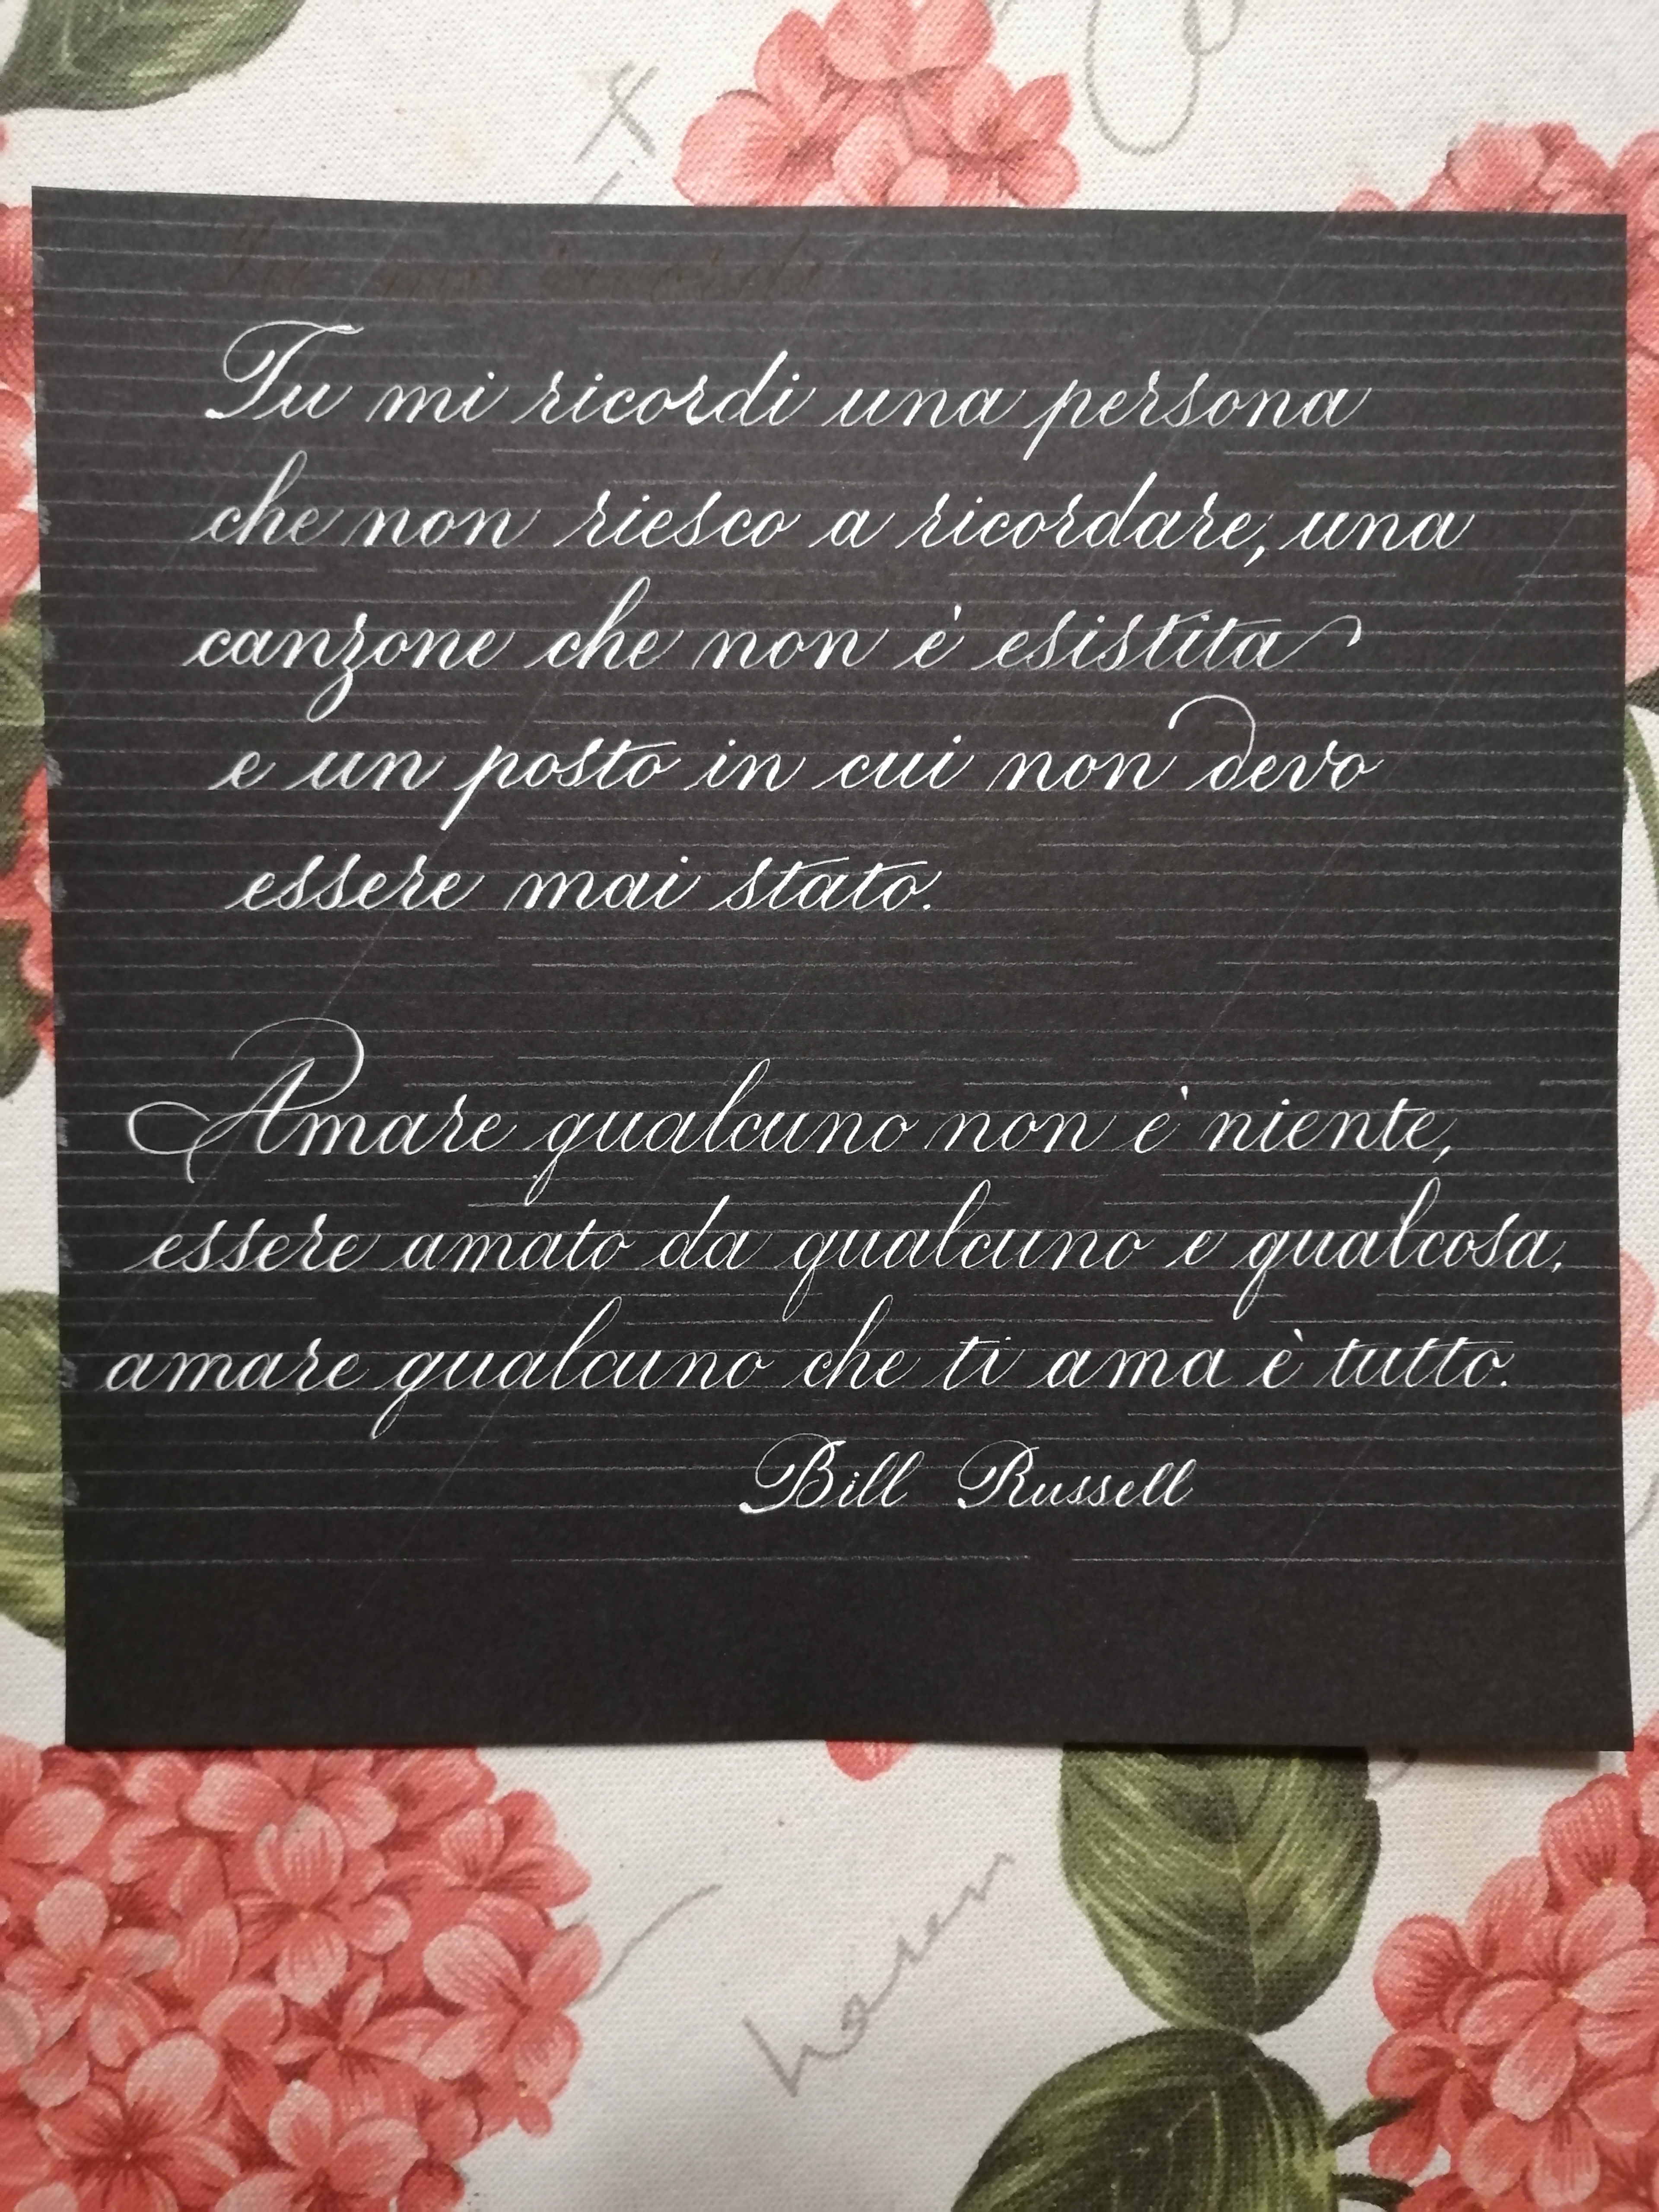 Tu mi ricordi una persona
che non riesco a ricordare, una
canzone che non è esistita
e un posto in cui non devo
essere mai stato.
Amare qualcuno non è niente,
essere amato da qualcuno e qualcosa,
amare qualcuno che ti ama è tutto.
Bill Russell